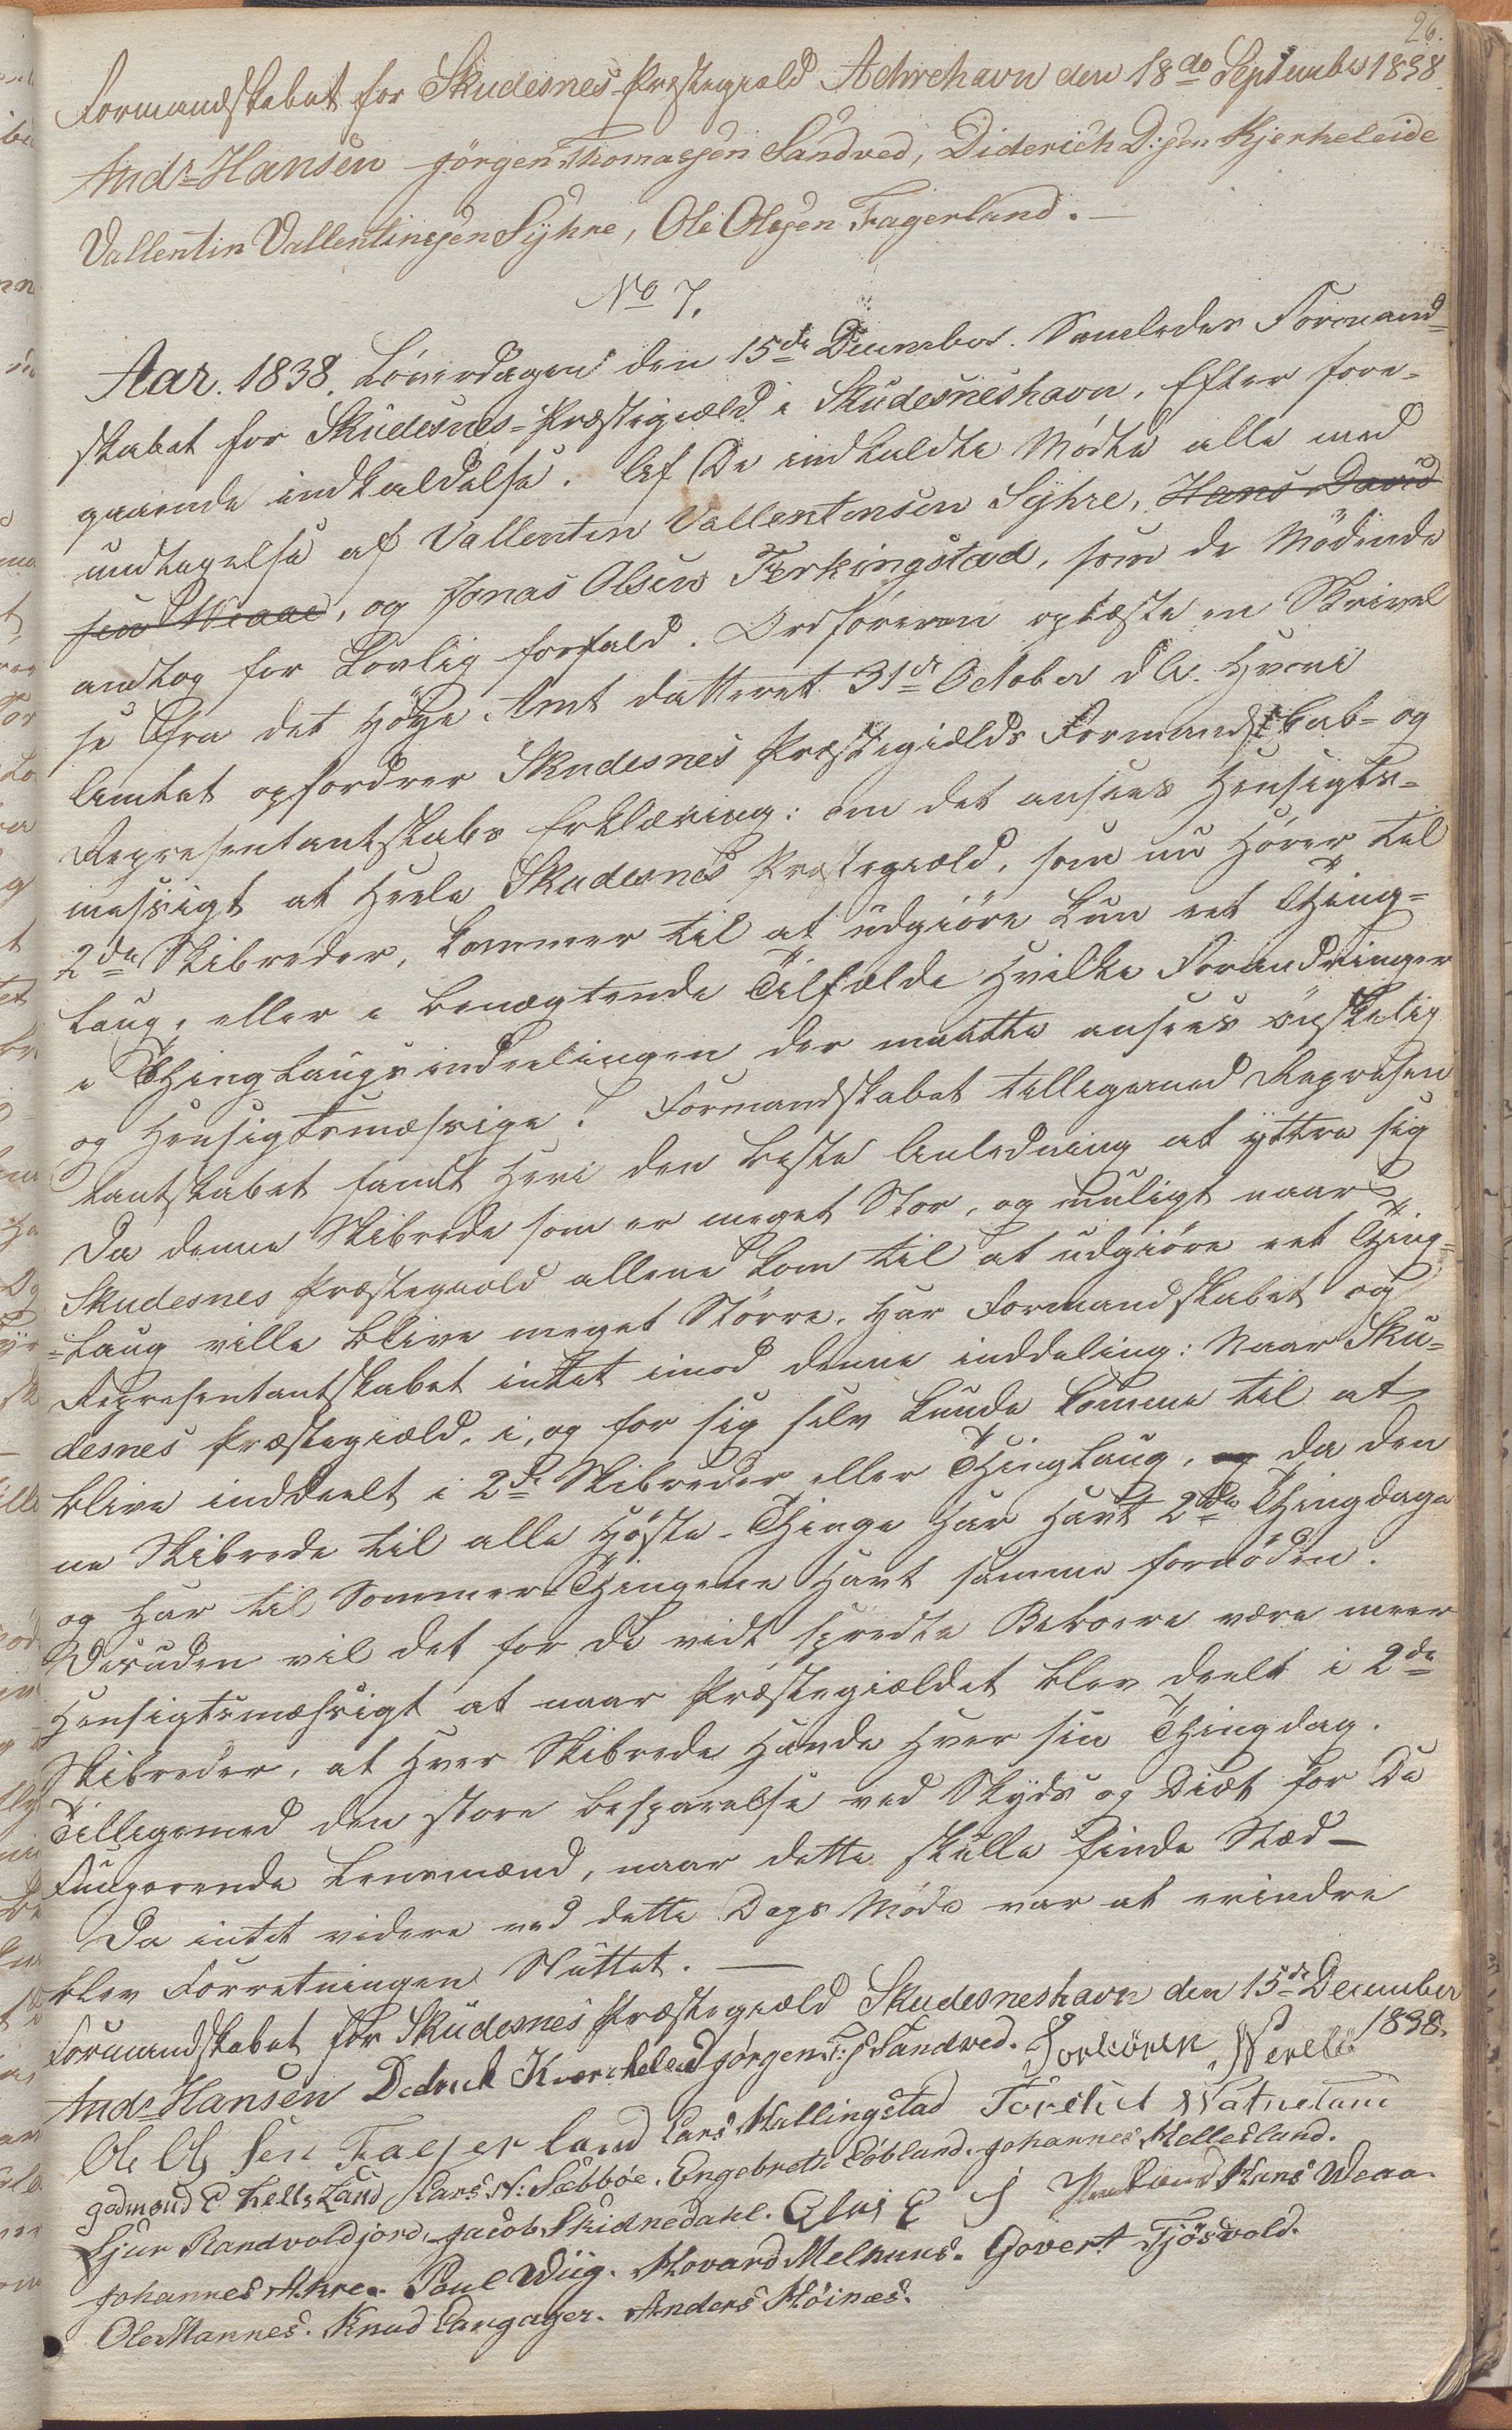 26.
Formandskabet for Skudesnes Præstegield Achrehavn den 18de September 1838
Andr. Hansen Jørgen Thomassen Sandved, Diderich D:sen Kjerkeleide
Vallentin Vallentinsen Syhre, Ole Olsen Fagerland. —
No 7.
Aar. 1838. Löverdagen den 15de December. Samledes Formand=
skabet for Skudesnes=Præstegiæld i Skudesneshavn, Efter fore-
gaaende indkaldelse. Af De indkaldte Mödte alle med
undtagelse af Vallentin Vallentinsen Syhre, Hans David
sen Weaae, og Jonas Olsen Ferkingstad, som de Mödende
andtog for Lovlig forfald. Ordföreren oplæste en Skrivel
se Fra det höye Amt datteret 31de October d.A. Hvori
Amtet opfordrer Skudesnes Præstegields Formandskab- og
Representantskabs Erklæring: om det ansees Hensigts-
messigt at Heele Skudesnes Præstegiæld, som nu hörer til
2de Skibreder, kommer til at udgiöre kun eet Thing=
laug, eller i benægtende Tilfælde Hvilke Forandringer
i Thinglaugsinddelingen der maatte ansees önskelig
og Hensigtsmæssige? Formandskabet tilligemed Represen
tantskabet fandt heri den beste Anledning at yttre sig
Da denne Skibrede som er meget Stor, og muligt naar
Skudesnes Præstegiæld allene kom til at udgiöre eet Thing=
=laug ville blive meget Större. har Formandskabet og
Representantskabet intet imod denne inddeling: Naar Sku=
desnes Præstegiæld, i, og for sig selv kunde komme til at
blive inddeelt i 2de Skibreder eller Thinglaug, og da den
ne Skibrede til alle Höste-Thinge har havt 2de Thingdage
og har til Sommer-Thingene havt samme fornöden.
Desuden vil det for de vidt spredte Beboere være meer
Hensigtsmæssigt at naar Præstegiældet blev deelt i 2de
Skibreder, at hver Skibrede havde hver sin Thingdag.
Tilligemed den store besparelse ved Skyds og Diæt for De
Fungerende Lensmænd, naar dette skulle finde Stæd —
Da intet videre ved dette Dags Möde var at erindre
blev Forretningen Sluttet. —
Formandskabet for Skudesnes Præstegiæld Skudesneshavn den 15de December
1838.
Andr. Hansen Dedrick Kverkeleid Jørgen T:S Sandved. Torkörck
Ole Ols Sen Faegerland Lars Hallingstad Torckel Watneland
godmond E Hellesland Lars N: Sæbböe. Engebreth Löbland. Johannes Mellesland.
Sjur Randvoldjord. Jacob Skidnedahl. Hans Weaa.
Johannes Ahre. Poul Wiig. Hovard Melhuus. Govert Fjösvold.
Ole Mannes. Knud Langager. Anders Höinæs.